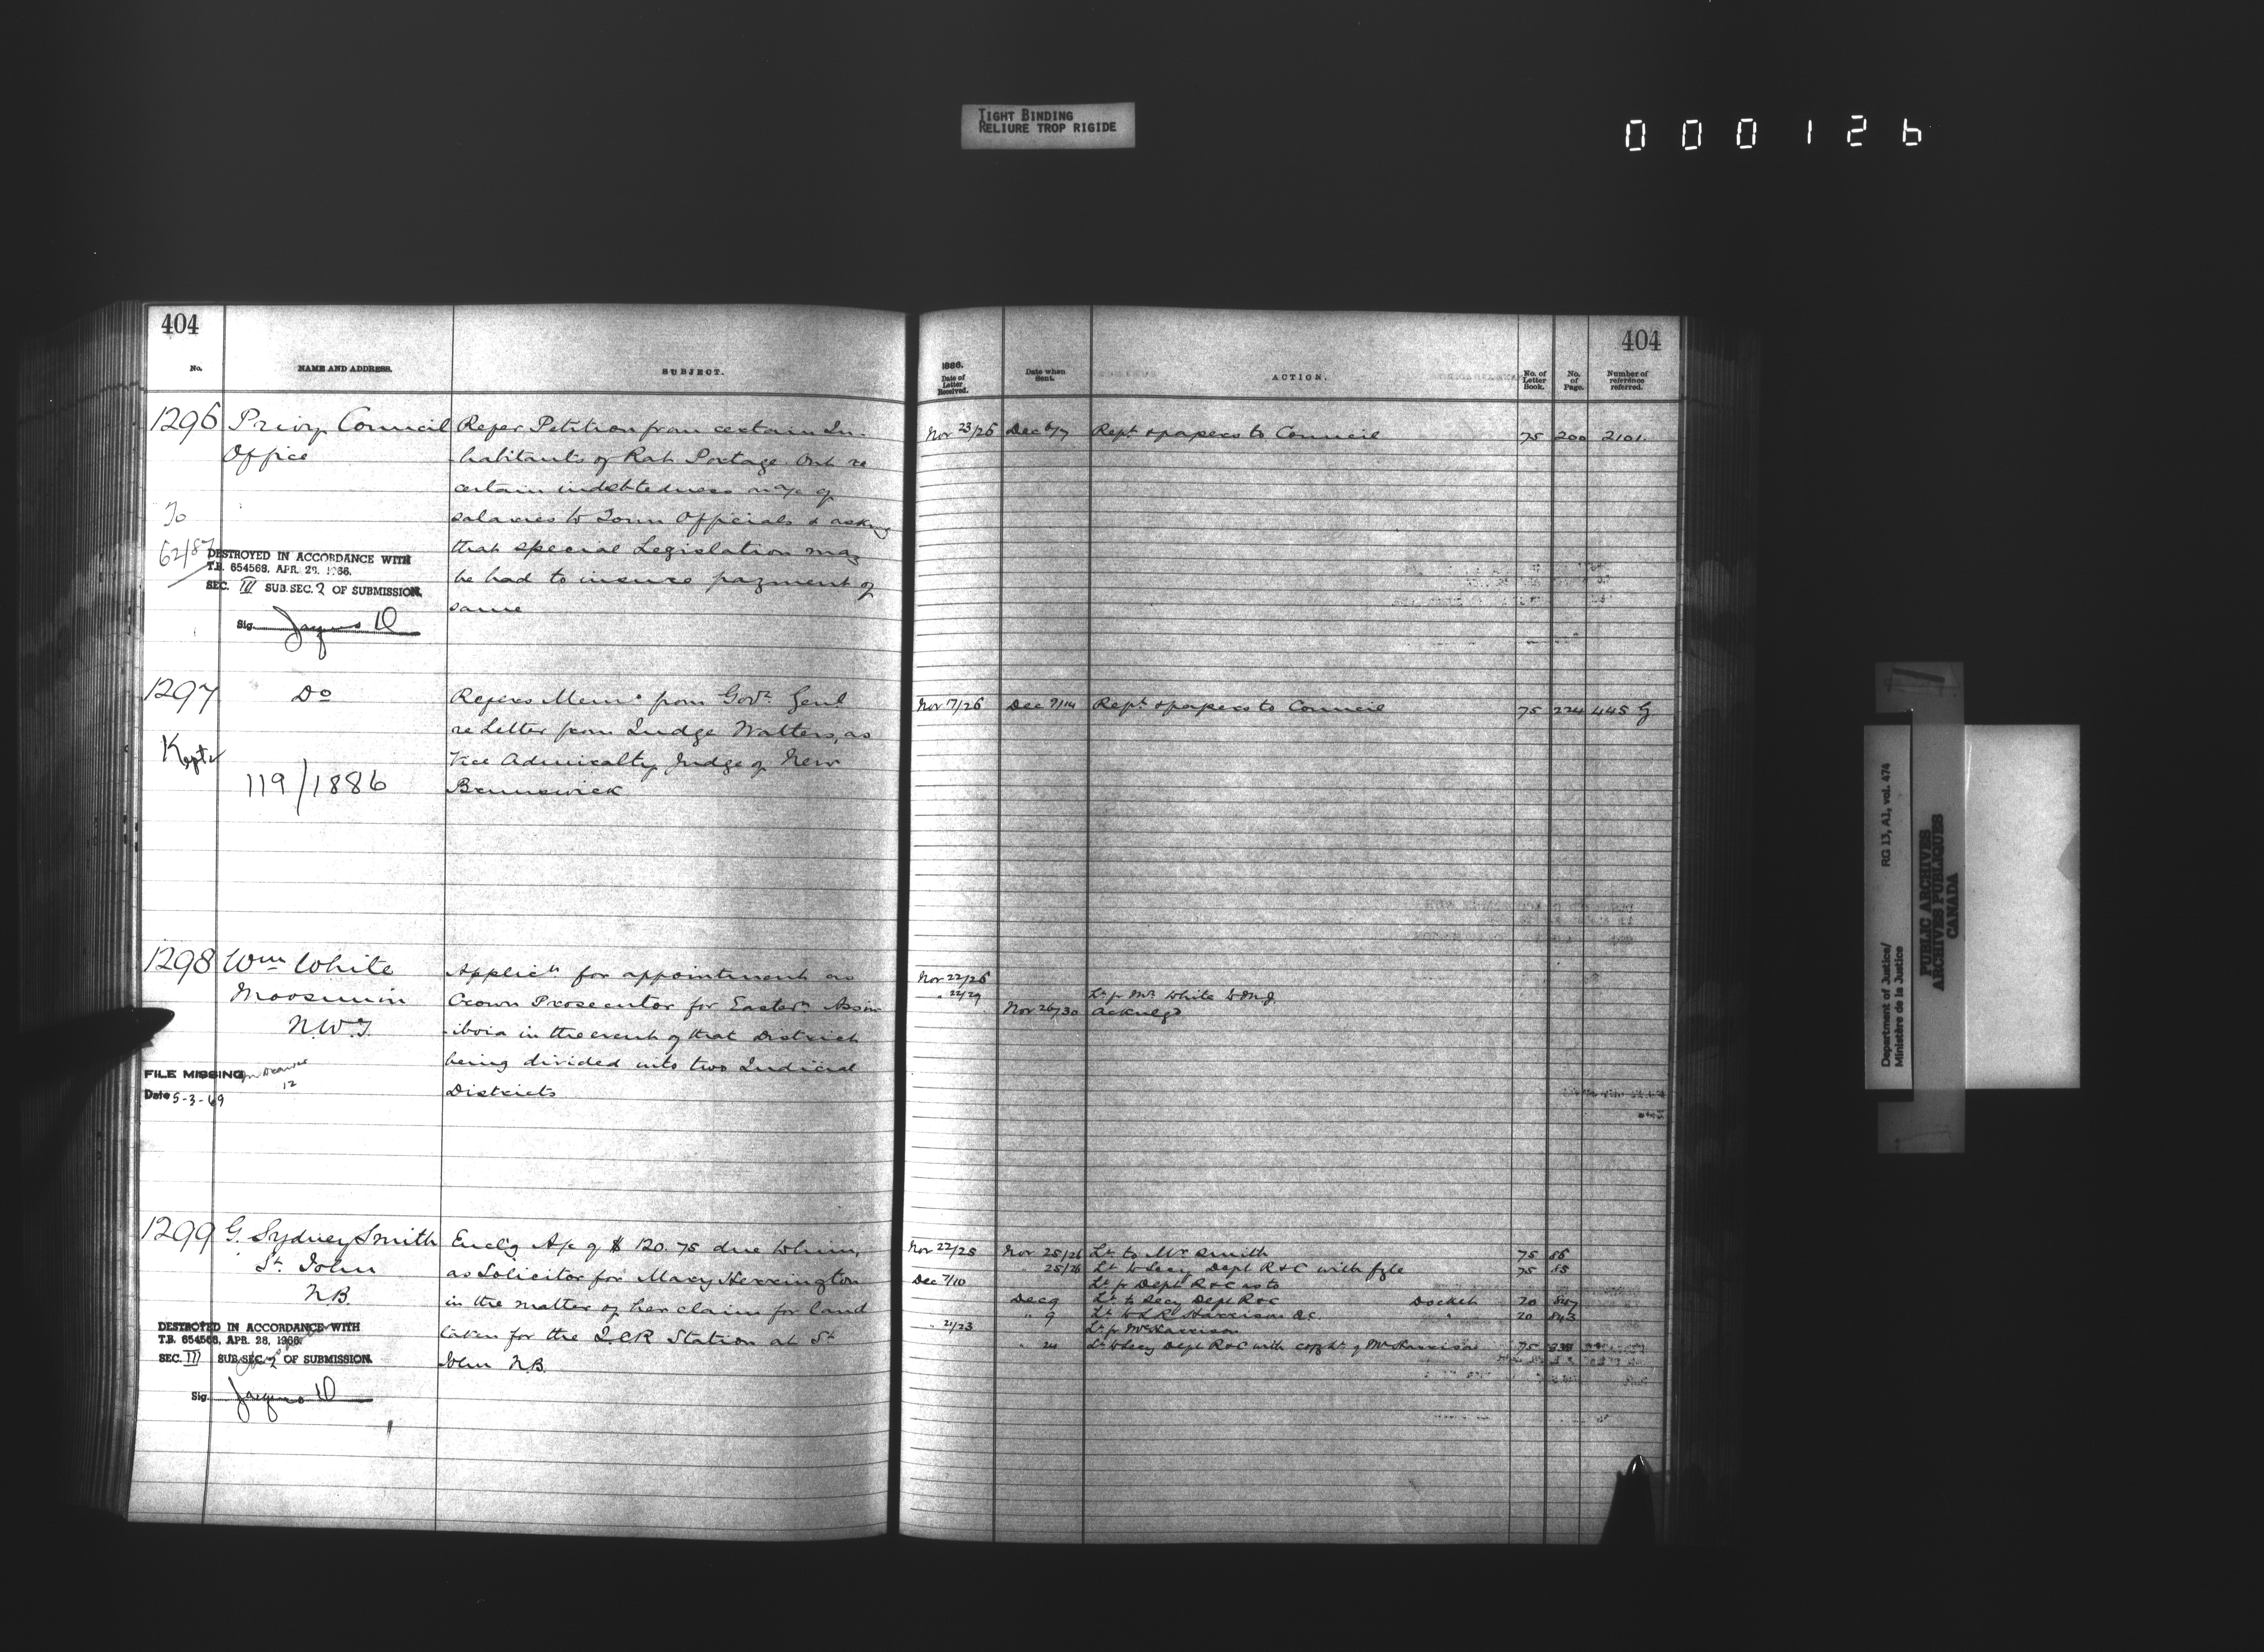 TIGHT BINDING
RELIURE TROP RIGIDE
000126
404
No. NAME AND ADDRESS. SUBJECT.
1296 Privy Council Refer Petition from certain In-
Office habitants of Rat Portage Ont re
certain indebtedness on a/c of
To salaries to Town Officials & asking
62/87 that special Legislation may
be had to insure payment of
same
DESTROYED IN ACCORDANCE WITH
T.B. 654568, APR. 28, 1966.
SEC. III SUB.SEC. 2 OF SUBMISSION.
Sig.
1297 Do Refers Memo from Govr. Genl
re Letter from Judge Watters, as
Kept Vice Admiralty Judge of New
119/1886 Brunswick
1298 Wm White Applicn for appointment as
Moosomin Crown Prosecutor for Eastern Assin
N.W.T. iboia in the event of that District
being divided into two Judicial
Districts
FILE MISSING
12
Date 5-3-69
1299 G. Sydney Smith Encl'g A/c of $120.75 due to him,
St. John as Solicitor for Mary Herrington
N.B. in the matter of her claim for land
taken for the I.C.R Station at St
John N.B.
DESTROYED IN ACCORDANCE WITH
T.B. 654568, APR. 28, 1966.
SEC. III SUB.SEC. 2 OF SUBMISSION.
Sig.
404
1886.
Date of Letter Received. Date when Sent. ACTION. No. of Letter Book. No. of Page. Number of reference referred.
Nov 23/26 Dec 6/7 Rept & papers to Council 75 200 2101.
Nov 7/26 Dec 9/14 Rept & papers to Council 75 224 445 G
Nov 22/26
" 22/29 Lr fr Mr White to M.J.
Nov 26/30 Acknlgd
Nov 22/25 Nov 25/26 Lr to Mr Smith 75 86
" 25/26 Lr to Secy Dept R&C with fyle 75 85
Dec 7/10 Lr fr Dept R&C as to
Dec 9 Lr to Secy Dept R&C Docket 20
" 9 Lr to L R Harrison QC " 20 843
" 21/23 Lr fr Mr Harrison
" 24 Lr to Secy Dept R&C with copy lr of Mr Harrison 75
Department of Justice/ RG 13, A1, vol. 474
Ministère de la Justice
PUBLIC ARCHIVES
ARCHIVES PUBLIQUES
CANADA